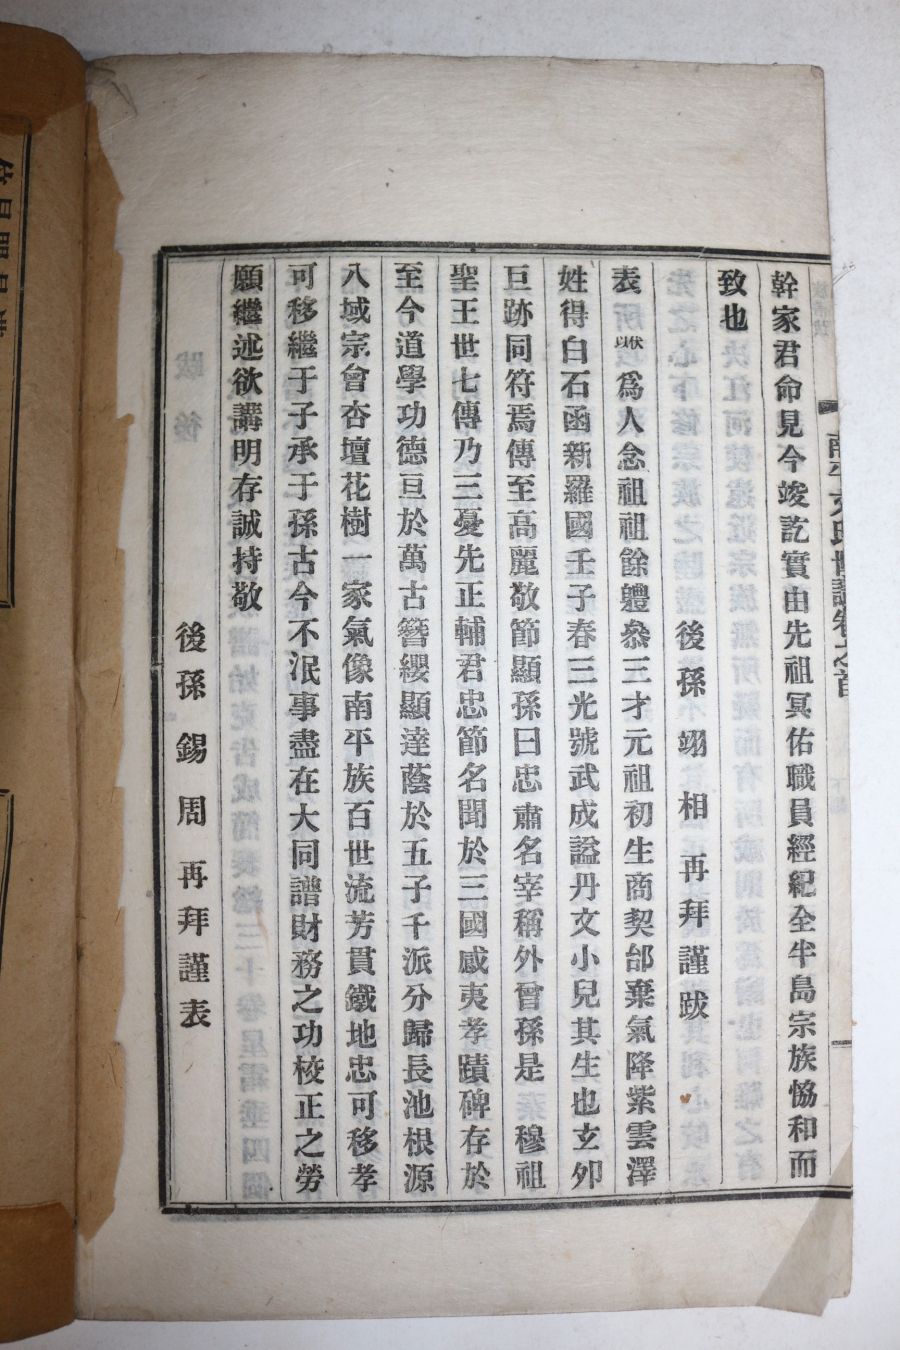 南平文氏世譜卷之首
幹家君命見今竣訖實由先祖冥佑職員經紀全半島宗族恊和而
致也
後孫 翊 相 再拜謹跋
表跋爲人念祖祖餘軆叅三才元祖初生商契邰棄氣降紫雲澤
姓得白石函新羅國壬子春三光號武成謚丹文小兒其生也玄夘
巨跡同符焉傳至高麗敬節顯孫曰忠肅名宰稱外曾孫是 穆祖
聖王世七傳乃三憂先正輔君忠節名聞於三國感夷孝蹟碑存於
至今道學功德亘於萬古簪纓顯達蔭於五子千派分歸長池根源
八域宗會杏壇花樹一家氣像南平族百世流芳貫鐵地忠可移孝
可移繼于子承于孫古今不泯事盡在大同譜財務之功校正之勞
願繼述欲講明存誠持敬
後孫 錫 周 再拜謹表